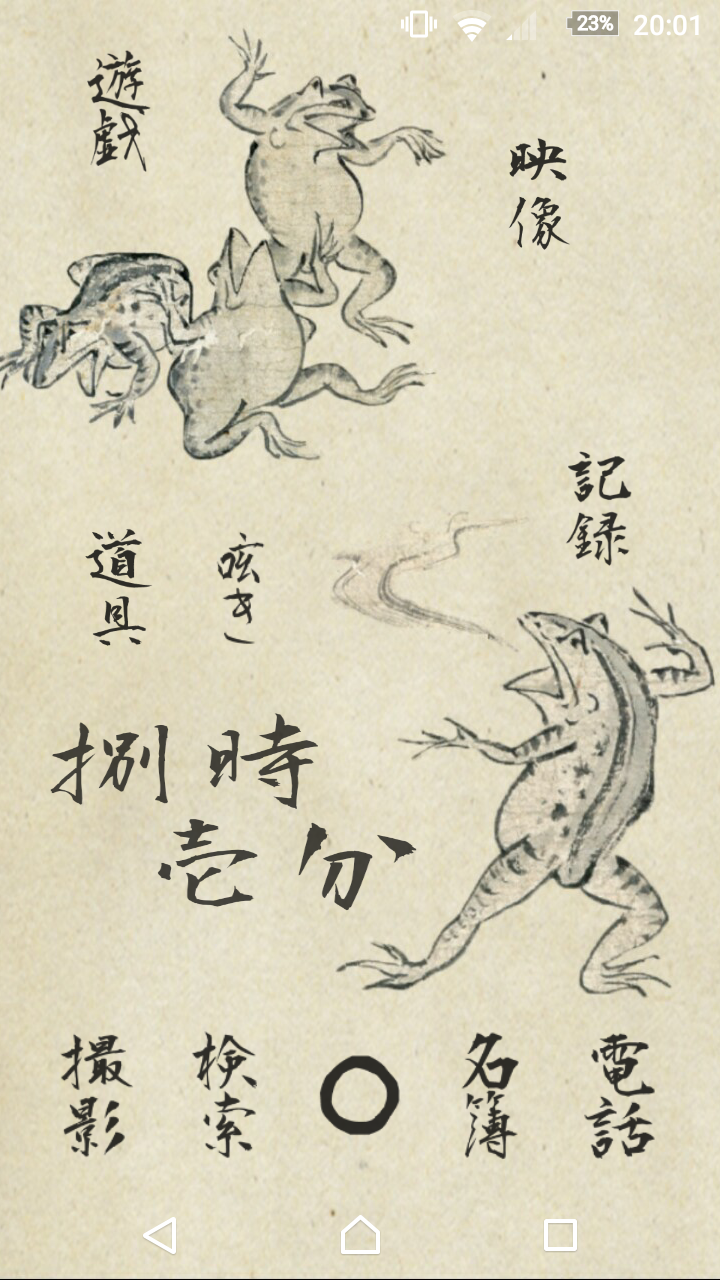 23% 20:01
遊戯
映像
記録
道具
呟き
捌時
壱分
撮影
検索
名簿
電話